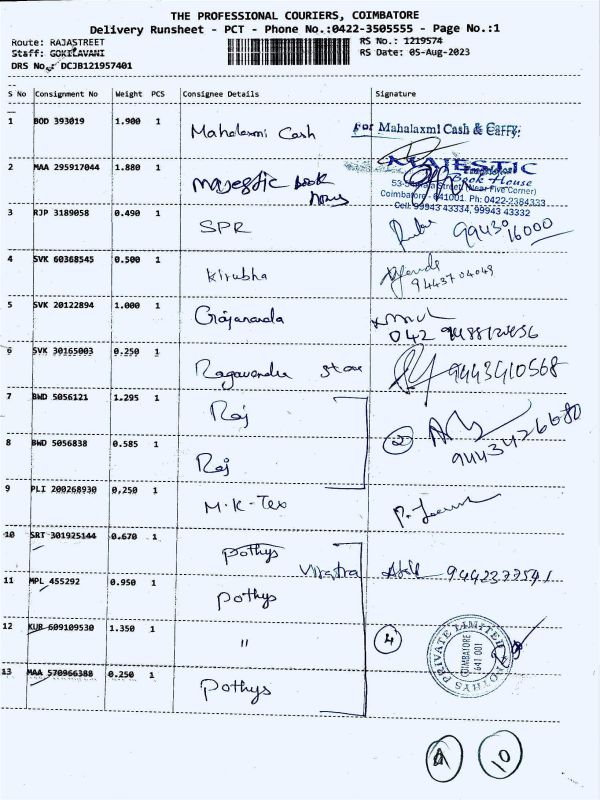 THE PROFESSIONAL COURIERS, COIMBATORE
Delivery Runsheet - PCT - Phone No.:0422-3505555 - Page No.:1
Route: RAJASTREET
RS No.: 1219574
Staff: GOKILAVANI
RS Date: 05-Aug-2023
DRS No.: DCJB121957401
S No Consignment No Weight PCS Consignee Details Signature
1 BOD 393019 1.900 1 Mahalaxmi Cash For Mahalaxmi Cash & Carry.
2 MAA 295917044 1.880 1 Majestic book hous
MAJESTIC
Book House
Street (Near Five Corner)
Coimbatore - 641001. Ph: 0422-2384333
Cell: 99943 43334, 99943 43332
3 RJP 3189058 0.490 1 SPR 99430 16000
4 SVK 60368545 0.500 1 Kirubha 9443704049
5 SVK 20122894 1.000 1 Gajananda
6 SVK 30165003 0.250 1 Ragavendra store 9443410568
7 BWD 5056121 1.295 1 Raj
2 9443426680
8 BWD 5056838 0.585 1 Raj
9 PLI 200268930 0.250 1 M.K-Tex
10 SRT 301925144 0.670 1 pothys
11 MPL 455292 0.950 1 pothys
12 KUR 609109530 1.350 1 " 4
POTHYS PRIVATE LIMITED
COIMBATORE
641 001
13 MAA 570966388 0.250 1 pothys
10